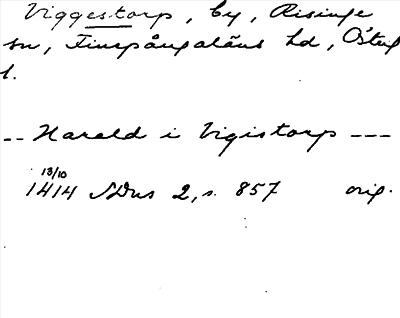 Viggestorp, by, Risinge
sn, Finspångaläns hd, Östergl
l.
-- Harald i Vigistorp ---
18/10
1414 SDns 2, s. 857 orig.